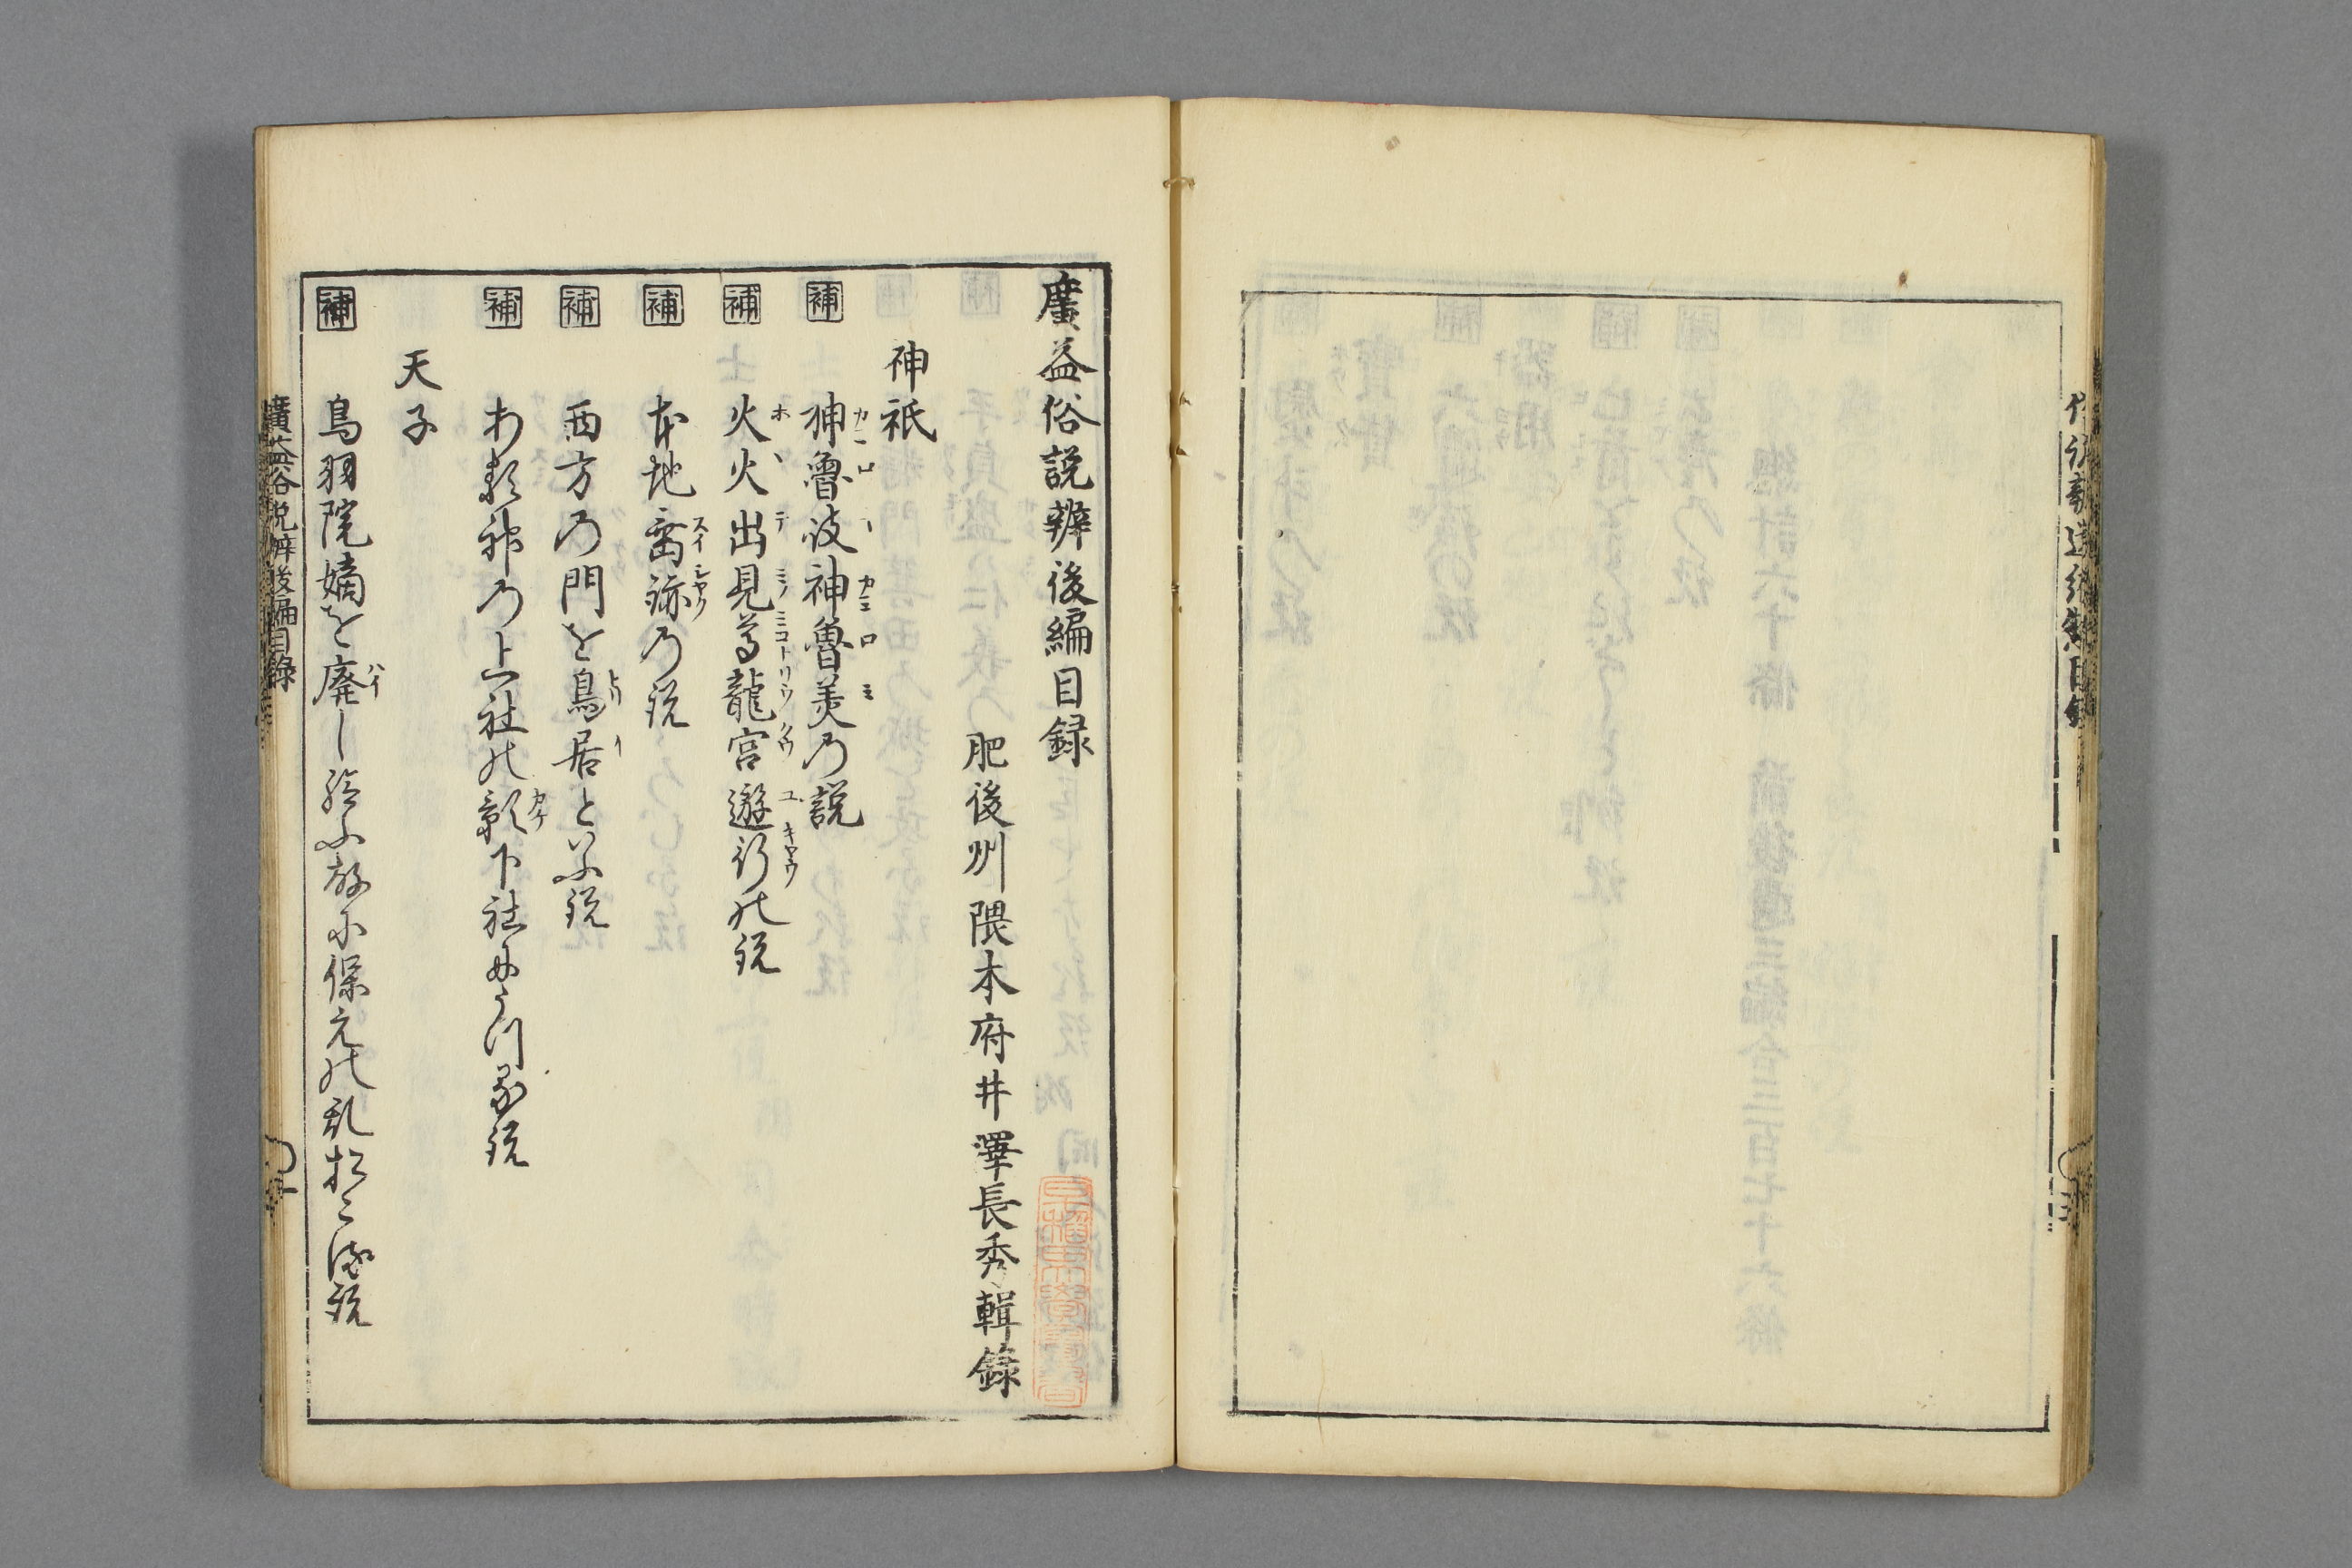 廣益俗説辨後編目録
肥後州隈本府井澤長秀輯錄
神祇
補 神魯岐神魯美の説
補 火火出見尊龍宮遊行の説
補 本地垂跡の説
補 西方の門を鳥居といふ説
補 わ影神の上社の影下社にうつる説
天子
補 鳥羽院嫡を廃し給ふ故に保元の乱おこる説
廣益俗説辨後編目錄